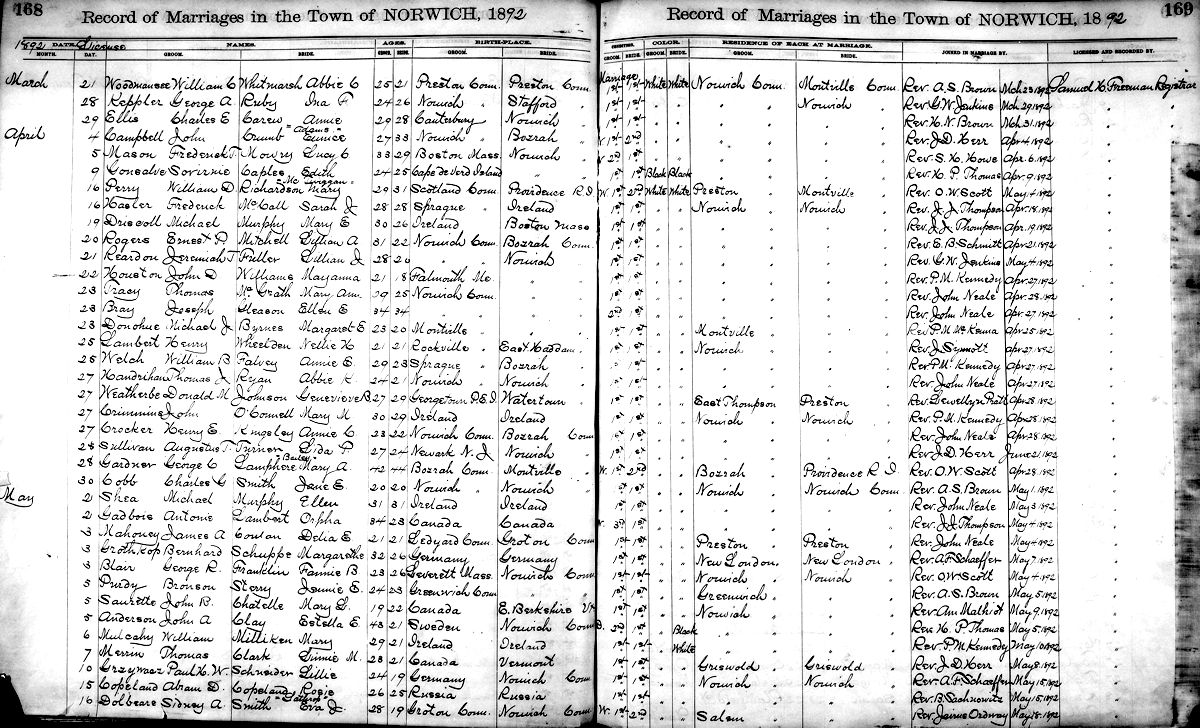 168
Record of Marriages in the Town of NORWICH, 1892
1892 DATE. License NAMES. AGES. BIRTH-PLACE.
MONTH. DAY. GROOM. BRIDE. GROOM. BRIDE. GROOM. BRIDE.
March 21 Woodmansee William C Whitmarsh Abbie C 25 21 Preston Conn. Preston Conn.
28 Keppler George A Ruby Ina F 24 26 Norwich " Stafford "
29 Ellis Charles E Carew Annie 29 28 Canterbury " Norwich "
"Adams"
April 4 Campbell John Crumb Eunice 27 33 Norwich " Bozrah "
5 Mason Frederick T. Mowry Lucy C 33 29 Boston Mass. Norwich "
9 Gonsalve Caples Edith 24 25 Cape de Verd Island " "
16 Perry William D. Richardson Mary 29 31 Scotland Conn. Providence R.I.
16 Hasler Frederick McCall Sarah J 28 28 Sprague " Ireland
19 Driscoll Michael Murphy Mary E 30 26 Ireland Boston Mass
20 Rogers Ernest P Mitchell Lillian A 31 22 Norwich Conn. Bozrah Conn.
21 Reardon Jeremiah T. Fuller Lillian J. 28 20 " " Norwich "
22 Houston John D Williams Mayanna 21 18 Falmouth Me. " "
23 Tracy Thomas McGrath Mary Ann. 29 25 Norwich Conn. " "
23 Bray Joseph Gleason Ellen E 34 34 " " " "
23 Donohue Michael J Byrnes Margaret E 23 20 Montville " " "
25 Lambert Henry Wheelden Nellie H 21 21 Rockville " East Haddam "
25 Welch William B Falvey Annie E. 29 23 Sprague " Bozrah "
27 Handrihan Thomas J Ryan Abbie K. 24 21 Norwich " Norwich "
27 Weatherbe Donald M. Johnson Genevieve B 27 29 Georgetown P.E.I. Watertown "
27 Crimmins John O'Connell Mary M 30 29 Ireland Ireland
27 Crocker Henry E. Kingsley Annie C 23 22 Norwich Conn. Bozrah Conn
28 Sullivan Augustus T. Turner Lida P 27 24 Newark N.J. Norwich "
"Bailey"
28 Gardner George C Lamphere Mary A. 42 44 Bozrah Conn. Montville "
30 Cobb Charles G Smith Jane E. 20 20 Norwich " Norwich "
May 2 Shea Michael Murphy Ellen 31 31 Ireland Ireland
2 Gadbois Antonie Lambert Orpha 34 23 Canada Canada
3 Mahoney James A Conlan Delia E 21 21 Ledyard Conn. Groton Conn.
3 Grothkop Bernhard Schuppe Margarethe 32 26 Germany Germany
3 Blair George R. Franklin Fannie B 23 26 Leverett Mass. Norwich Conn
5 Purdy Bronson Sterry Jennie E. 24 23 Greenwich Conn " "
5 Saurette John B. Chatelle Mary L. 19 22 Canada E. Berkshire Vt
5 Anderson John A Clay Estella E. 43 21 Sweden Norwich Conn
6 Mulcahy William Milliken Mary 29 21 Ireland Ireland
7 Merrin Thomas Clark Minnie M. 23 21 Canada Vermont
10 Paul H. W. Schneider Lillie 24 19 Germany Norwich Conn.
15 Copeland Abram D. Copeland Rosie 26 25 Russia Russia
16 Dolbeare Sidney A. Smith Eva J. 28 19 Groton Conn. Norwich Conn.
Record of Marriages in the Town of NORWICH, 1892
169
COLOR. RESIDENCE OF EACH AT MARRIAGE. JOINED IN MARRIAGE BY. LICENSED AND RECORDED BY.
GROOM. BRIDE. GROOM. BRIDE. GROOM. BRIDE.
Marriage
1st 1st White White Norwich Conn. Montville Conn. Rev. A. S. Brown Mch 23 1892 Samuel H. Freeman Registrar
1st 1st " " " " Norwich " Rev. G. W. Jenkins Mch. 29, 1892 "
1st 1st " " " " " " Rev. H. N. Brown Mch 31, 1892 "
1st 2nd " " " " " " Rev. J. D. Herr Apr 4 1892 "
2nd 1st " " " " " " Rev. S. H. Howe Apr. 6, 1892 "
1st 1st Black Black " " " " Rev. H. P. Thomas Apr. 9, 1892 "
W. 1st 2nd White White Preston " Montville " Rev. O. W. Scott May 4, 1892 "
1st 1st " " Norwich " Norwich " Rev. J. J. Thompson Apr. 18, 1892 "
1st 1st " " " " " " Rev. J. J. Thompson Apr. 19, 1892 "
1st 1st " " " " " " Rev. E. B. Schmitt Apr. 21, 1892 "
1st 1st " " " " " " Rev. G. W. Jenkins May 4, 1892 "
1st 1st " " " " " " Rev. P. M. Kennedy Apr. 27, 1892 "
1st 1st " " " " " " Rev. John Neale Apr. 28, 1892 "
2nd 1st " " " " " " Rev. John Neale Apr. 27, 1892 "
1st 1st " " Montville " " " Rev. P. M. McKenna Apr 25, 1892 "
1st 1st " " Norwich " " " Rev. J. Synnott Apr 27, 1892 "
1st 1st " " " " " " Rev P. M. Kennedy Apr. 27, 1892 "
1st 1st " " " " " " Rev. John Neale Apr. 27, 1892 "
1st 1st " " East Thompson Preston " Rev. Llewellyn Pratt Apr 28 1892 "
1st 1st " " Norwich " Norwich " Rev. P. M. Kennedy Apr. 28, 1892 "
1st 1st " " " " " " Rev. John Neale Apr. 28, 1892 "
1st 1st " " " " " " Rev. J. D. Herr June 21, 1892 "
W. 1st 2nd " " Bozrah " Providence R.I. Rev. O. W. Scott Apr. 28 1892 "
1st 1st " " Norwich " Norwich Conn. Rev. A. S. Brown May 1, 1892 "
1st 1st " " " " " " Rev. John Neale May 3, 1892 "
3d 1st " " " " " " Rev. J. J. Thompson May 4, 1892 "
1st 1st " " Preston " Preston " Rev. John Neale May 4 1892 "
1st 1st " " New London " New London " Rev. A. F. Schaffer May 7, 1892 "
1st 1st " " Norwich " Norwich " Rev. O. W. Scott May 4, 1892 "
1st 1st " " Greenwich " " " Rev. A. S. Brown May 5, 1892 "
1st 1st " " Norwich " " " Rev. Am Mathiot May 9, 1892 "
2d 1st " Black " " " " Rev. H. P. Thomas May 5, 1892 "
1st 1st " White " " " " Rev. P. M. Kennedy May 10, 1892 "
1st 1st " " Griswold " Griswold " Rev. J. D. Herr May 8, 1892 "
1st 1st " " Norwich " Norwich " Rev. A. F. Schaeffer May 15, 1892 "
1st 1st " " " " " " Rev. B. Sachnowitz May 15, 1892 "
W. 1st 2nd " " Salem " " " Rev. James Ordway May 18, 1892 "